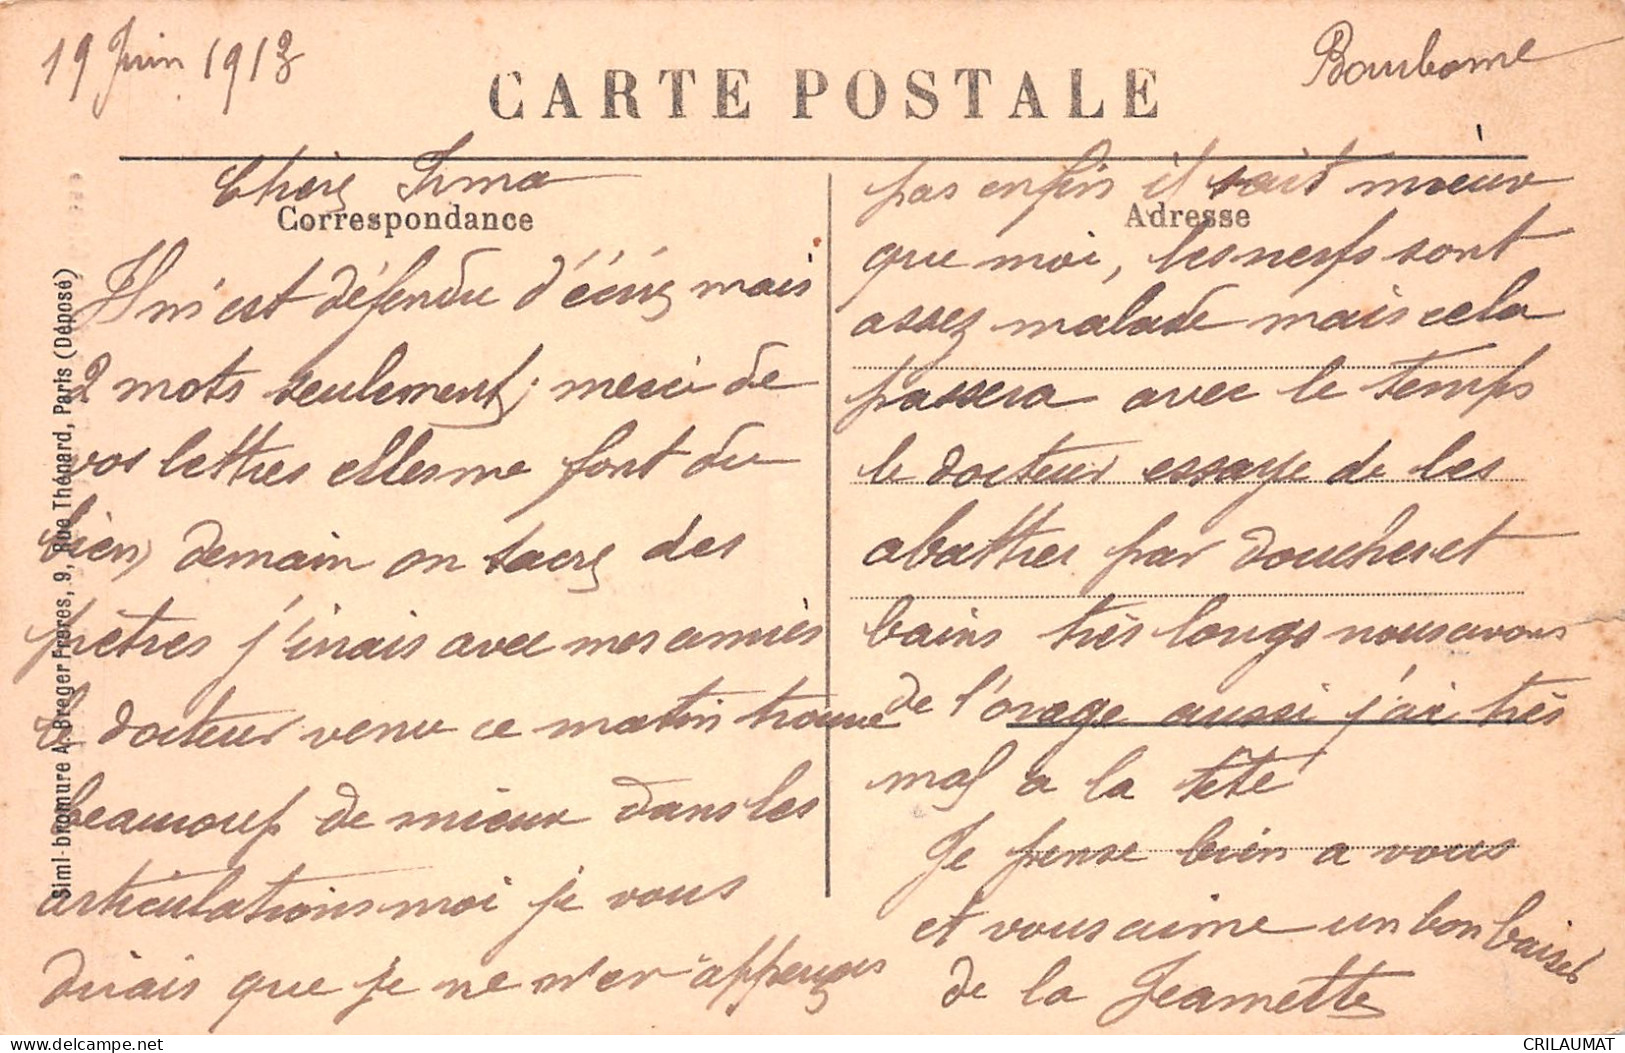 19 Juin 1913
Bourbonne
CARTE POSTALE
Chère Irma
Correspondance
Il m'est défendu d'écrire mais
2 mots seulement, merci de
vos lettres elles me font du
bien, demain on sacre des
prêtres j'irais avec mes amies
le docteur venu ce matin trouve
beaucoup de mieux dans les
articulations moi je vous
dirais que je ne m'en apperçois
pas enfin il sait mieux
Adresse
que moi, les nerfs sont
assez malade mais cela
passera avec le temps
le docteur essaye de les
abattres par douches et
bains très longs nous avons
de l'orage aussi j'ai très
mal a la tête
Je pense bien a vous
et vous aime un bon baiser
de la Jeannette
Simi-bromure A. Breger Frères, 9, Rue Thénard, Paris (Déposé)
CRILAUMAT